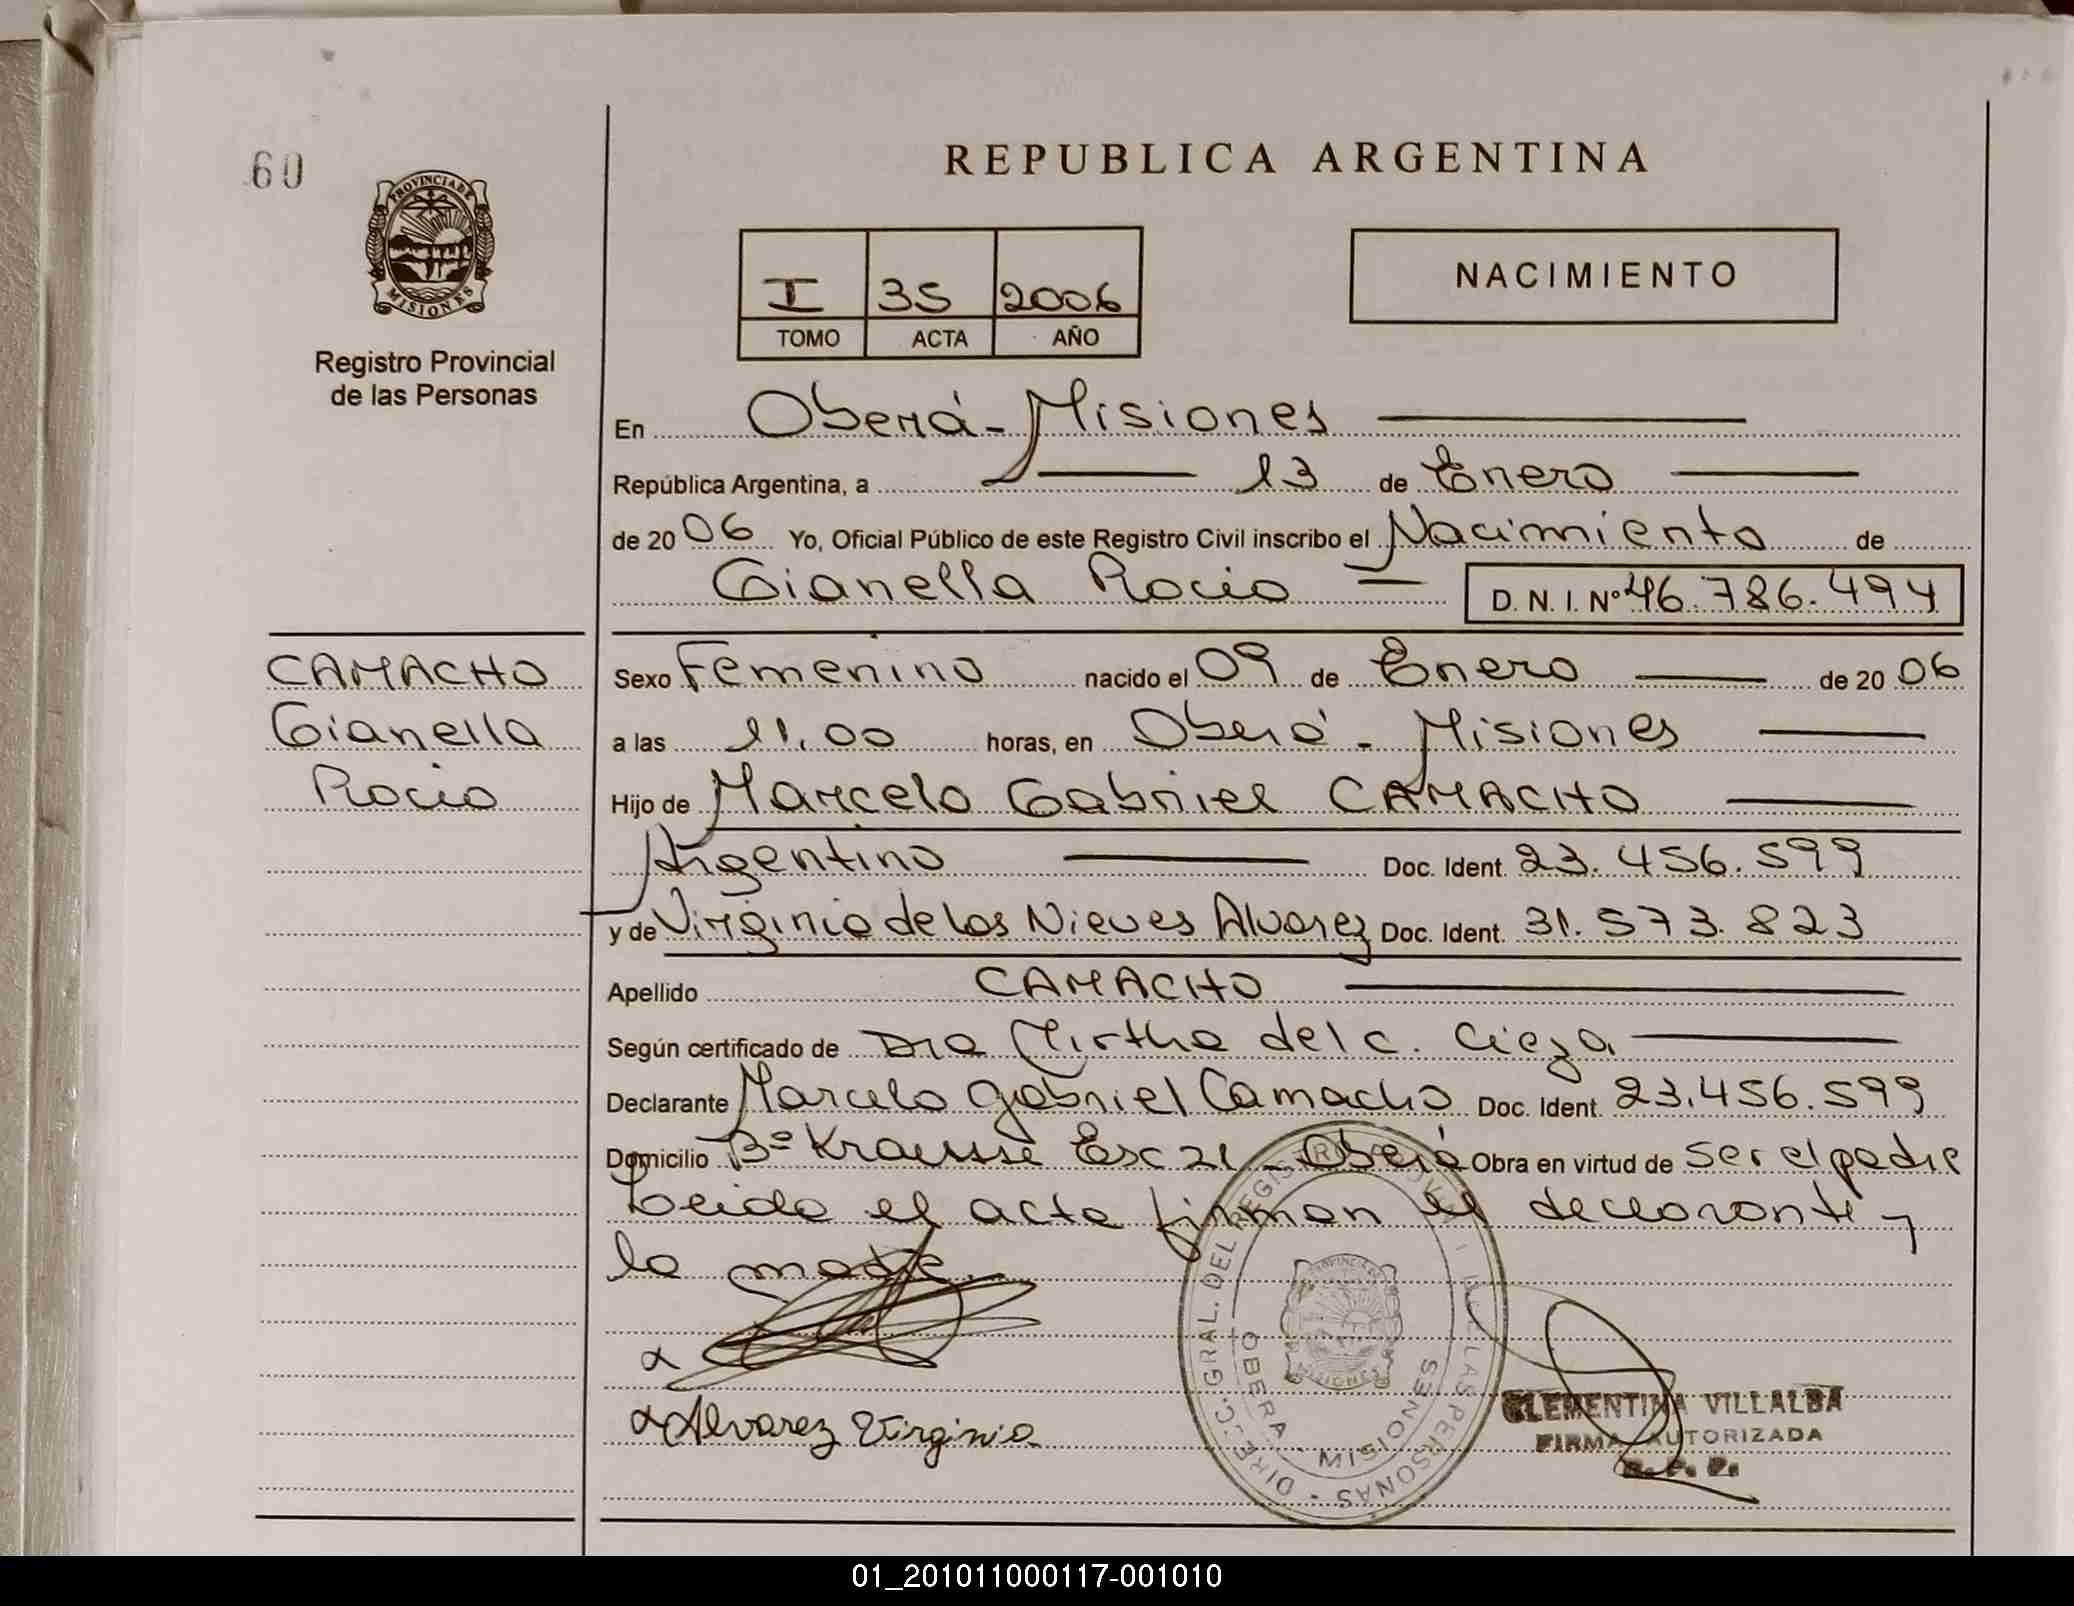 60
PROVINCIA DE
MISIONES
Registro Provincial
de las Personas
REPUBLICA ARGENTINA
I 35 2006
TOMO ACTA AÑO
NACIMIENTO
En Oberá - Misiones
República Argentina, a 13 de Enero
de 2006 Yo, Oficial Público de este Registro Civil inscribo el Nacimiento de
Gianella Rocio D. N. I. Nº 46.786.494
CAMACHO
Gianella
Rocio
Sexo Femenino nacido el 09 de Enero de 2006
a las 11.00 horas, en Oberá - Misiones
Hijo de Marcelo Gabriel CAMACHO
Argentino Doc. Ident. 23.456.599
y de Virginia de las Nieves Alvarez Doc. Ident. 31.573.823
Apellido CAMACHO
Según certificado de Dra Mirtha del c. Cieza
Declarante Marcelo Gabriel Camacho Doc. Ident. 23.456.599
Domicilio Bº Krausse Esc 21 - Oberá Obra en virtud de ser el padre
Leida el acta firman el declarante y
la madre.
Alvarez Virginia
DIRECC. GRAL. DEL REGISTRO PROVINCIAL DE LAS PERSONAS
OBERA - MISIONES
CLEMENTINA VILLALBA
FIRMA AUTORIZADA
R. P. P.
01_201011000117-001010